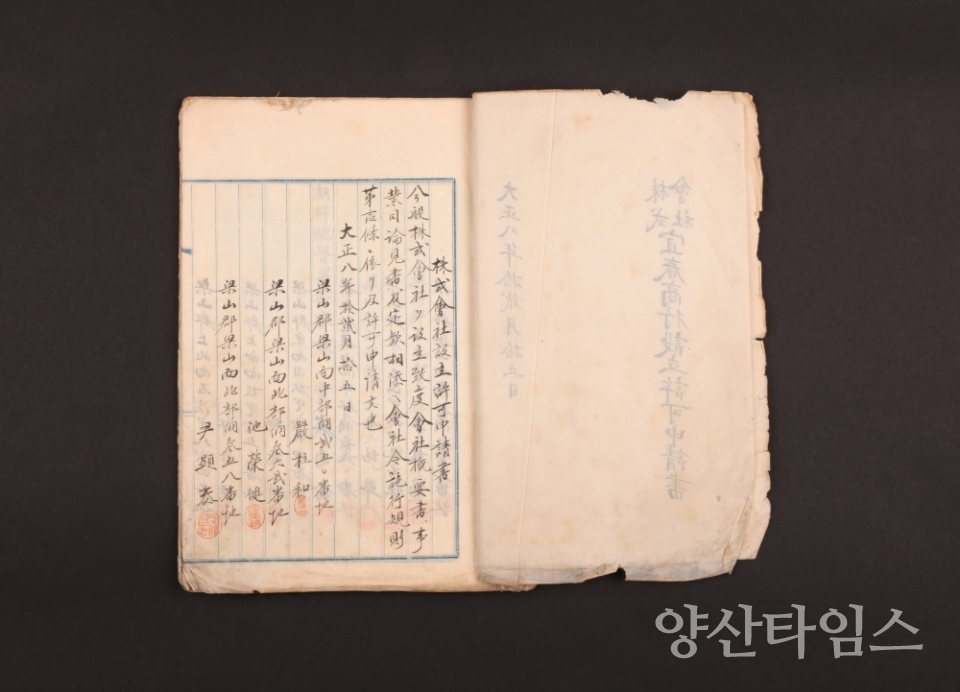 株式會社宜春商行設立許可申請書
大正八年拾貳月拾五日
株式會社設立許可申請書
今般株式會社ヲ設立致度會社概要書、事
業目論見書及定款相添ヘ會社令施行規則
第壱條ニ依リ及許可申請候也
大正八年拾貳月拾五日
梁山郡梁山面中部洞貳五〇番地
嚴柱和
梁山郡梁山面北部洞參六貳番地
池榮璡
梁山郡梁山面北部洞參五八番地
尹顯泰
양산타임스